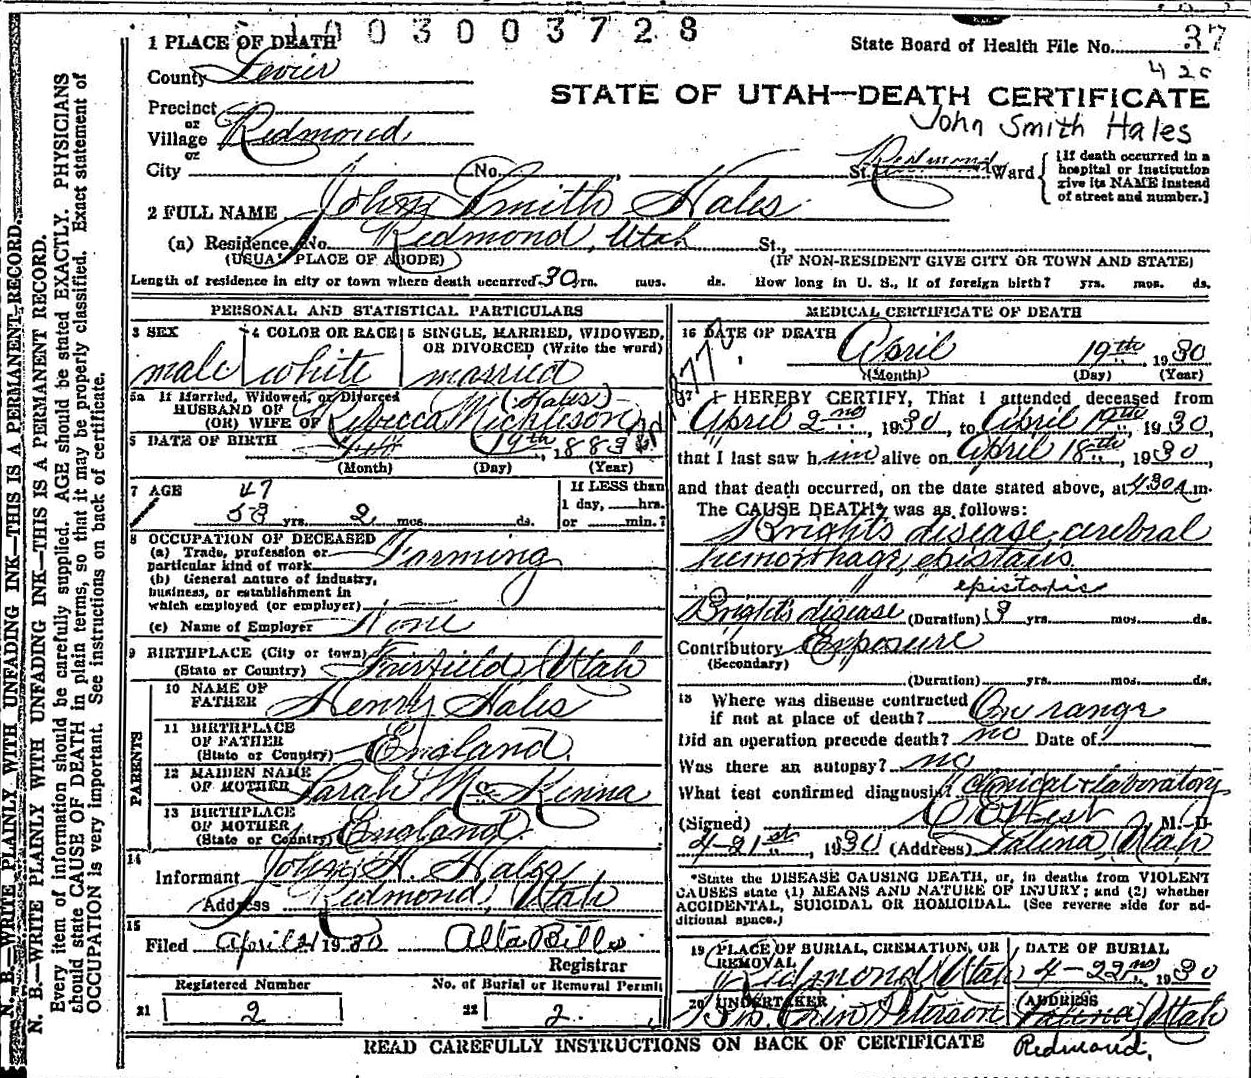 1 0 0 3 0 0 3 7 2 8
1 PLACE OF DEATH
State Board of Health File No. 37
County Sevier
420
STATE OF UTAH—DEATH CERTIFICATE
Precinct
or
Village Redmond
John Smith Hales
or
City No. , St. Redmond Ward
[If death occurred in a
hospital or institution
give its NAME instead
of street and number.]
2 FULL NAME John Smith Hales
(a) Residence, No. Redmond, Utah St.,
(USUAL PLACE OF ABODE) (IF NON-RESIDENT GIVE CITY OR TOWN AND STATE)
Length of residence in city or town where death occurred 30 yrs. mos. ds. How long in U. S., if of foreign birth? yrs. mos. ds.
PERSONAL AND STATISTICAL PARTICULARS
3 SEX
male
4 COLOR OR RACE
white
5 SINGLE, MARRIED, WIDOWED,
OR DIVORCED (Write the word)
married
5a If Married, Widowed, or Divorced
HUSBAND OF (Hales)
(OR) WIFE OF Rebecca Mickleson
6 DATE OF BIRTH 19th, 1883
(Month) (Day) (Year)
7 AGE 47
53 yrs. 2 mos. ds.
If LESS than
1 day, hrs.
or min.?
8 OCCUPATION OF DECEASED
(a) Trade, profession or
particular kind of work Farming
(b) General nature of industry,
business, or establishment in
which employed (or employer)
(c) Name of Employer None
9 BIRTHPLACE (City or town)
(State or Country) Fairfield, Utah
PARENTS
10 NAME OF
FATHER Henry Hales
11 BIRTHPLACE
OF FATHER
(State or Country) England
12 MAIDEN NAME
OF MOTHER Sarah McKinna
13 BIRTHPLACE
OF MOTHER
(State or Country) England
14
Informant John H. Hales
Address Redmond, Utah
15
Filed April 21 1930 Alta Bills
Registrar
Registered Number
21 2
No. of Burial or Removal Permit
22 2
MEDICAL CERTIFICATE OF DEATH
16 DATE OF DEATH
April 19th 1930
(Month) (Day) (Year)
1877
I HEREBY CERTIFY, That I attended deceased from
April 2nd, 1930, to April 19th, 1930,
that I last saw him alive on April 18th, 1930,
and that death occurred, on the date stated above, at 430 A m.
The CAUSE DEATH* was as follows:
Brights disease, cerebral
hemorrhage, epistaxis
" epistaxis
Bright's disease (Duration) 3 yrs. mos. ds.
Contributory Exposure
(Secondary)
(Duration) yrs. mos. ds.
18 Where was disease contracted
if not at place of death? On range
Did an operation precede death? no Date of
Was there an autopsy? no
What test confirmed diagnosis? Clinical & laboratory
(Signed) C E West M. D.
4-21st, 1930 (Address) Salina, Utah
*State the DISEASE CAUSING DEATH, or, in deaths from VIOLENT
CAUSES state (1) MEANS AND NATURE OF INJURY; and (2) whether
ACCIDENTAL, SUICIDAL OR HOMICIDAL. (See reverse side for ad-
ditional space.)
19 PLACE OF BURIAL, CREMATION, OR
REMOVAL
Redmond, Utah
DATE OF BURIAL
4-22nd 1930
20 UNDERTAKER
Orin Peterson
(ADDRESS
Salina, Utah
Redmond,
READ CAREFULLY INSTRUCTIONS ON BACK OF CERTIFICATE
N. B.—WRITE PLAINLY WITH UNFADING INK—THIS IS A PERMANENT RECORD.
N. B.—WRITE PLAINLY WITH UNFADING INK—THIS IS A PERMANENT RECORD.
Every item of information should be carefully supplied. AGE should be stated EXACTLY. PHYSICIANS
should state CAUSE OF DEATH in plain terms, so that it may be properly classified. Exact statement of
OCCUPATION is very important. See instructions on back of certificate.